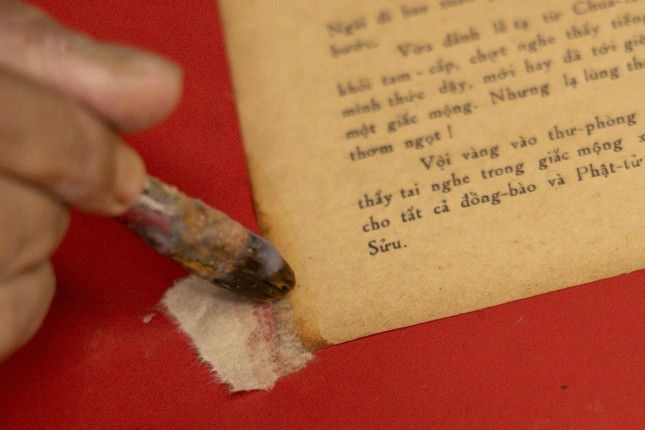 Ngài đi ban
bước. Vừa đảnh lễ tạ từ Chúa
khỏi tam-cấp, chợt nghe thấy tiếng
mình thức dậy, mới hay đã tới giờ
một giấc mộng. Nhưng lạ lùng
thơm ngọt !
Vội vàng vào thư-phòng
thấy tai nghe trong giấc mộng
cho tất cả đồng-bào và Phật-tử
Sửu.